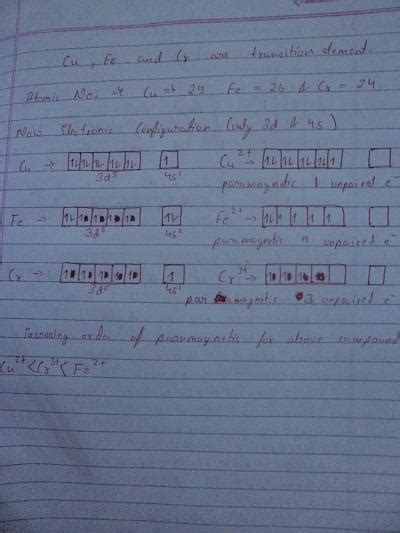 Cu, Fe and Cr are transition element.
Atomic No. → Cu → 29 Fe = 26 & Cr = 24
Now Electronic Configuration (only 3d & 4s)
Cu → 1l 1l 1l 1l 1l 1 Cu²⁺ → 1l 1l 1l 1l 1
3d⁵ 4s¹
paramagnetic 1 unpaired e⁻
Fe → 1l 1 1 1 1 1l Fe²⁺ → 1l 1 1 1 1
3d⁶ 4s² paramagnetic 4 unpaired e⁻
Cr → 1 1 1 1 1 1 Cr³⁺ → 1 1 1
3d⁵ 4s¹
paramagnetic 3 unpaired e⁻
increasing order of paramagnetic for above compound
Cu²⁺ < Cr³⁺ < Fe²⁺